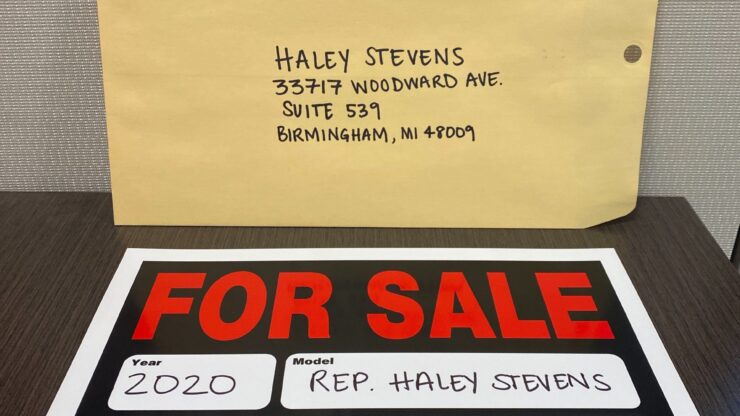 HALEY STEVENS
33717 WOODWARD AVE.
SUITE 539
BIRMINGHAM, MI 48009
FOR SALE
Year
2020
Model
REP. HALEY STEVENS